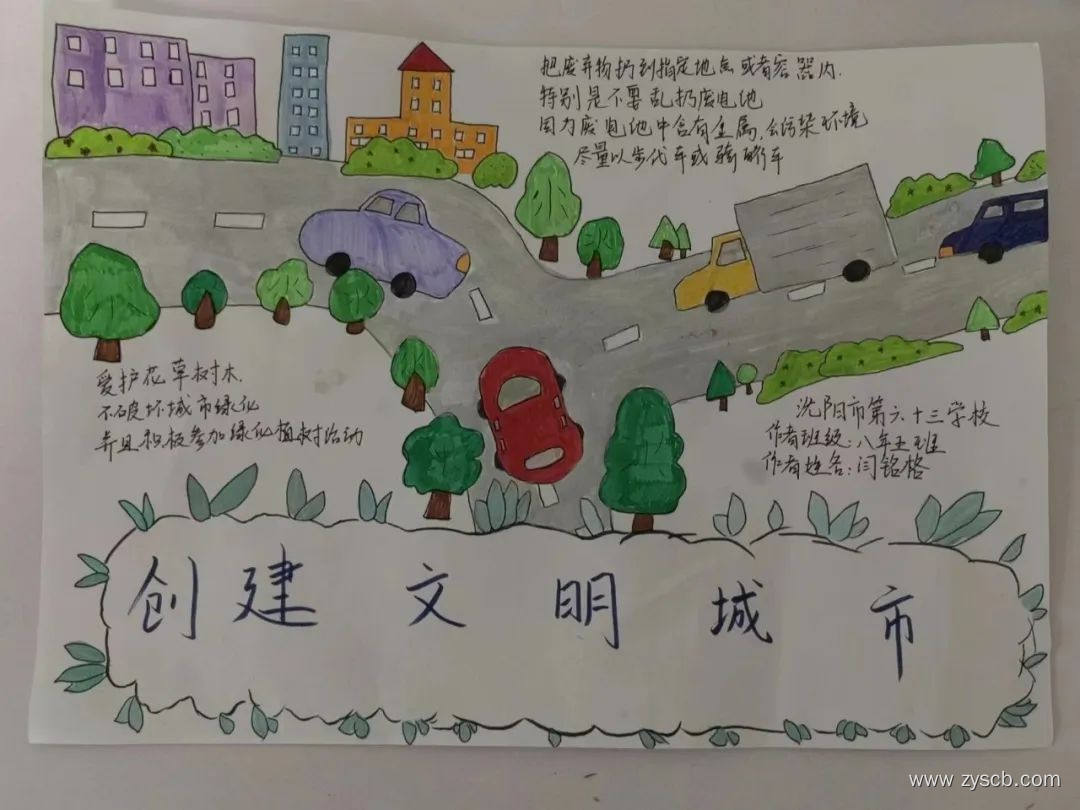 把废弃物扔到指定地点或者容器内.
特别是不要乱扔废电池
因为废电池中含有金属,会污染环境
尽量以步代车或骑行车
爱护花草树木.
不破坏城市绿化
并且积极参加绿化植树活动
沈阳市第六十三学校
作者班级:八年五班
作者姓名:闫铭格
创建文明城市
www.zyscb.com